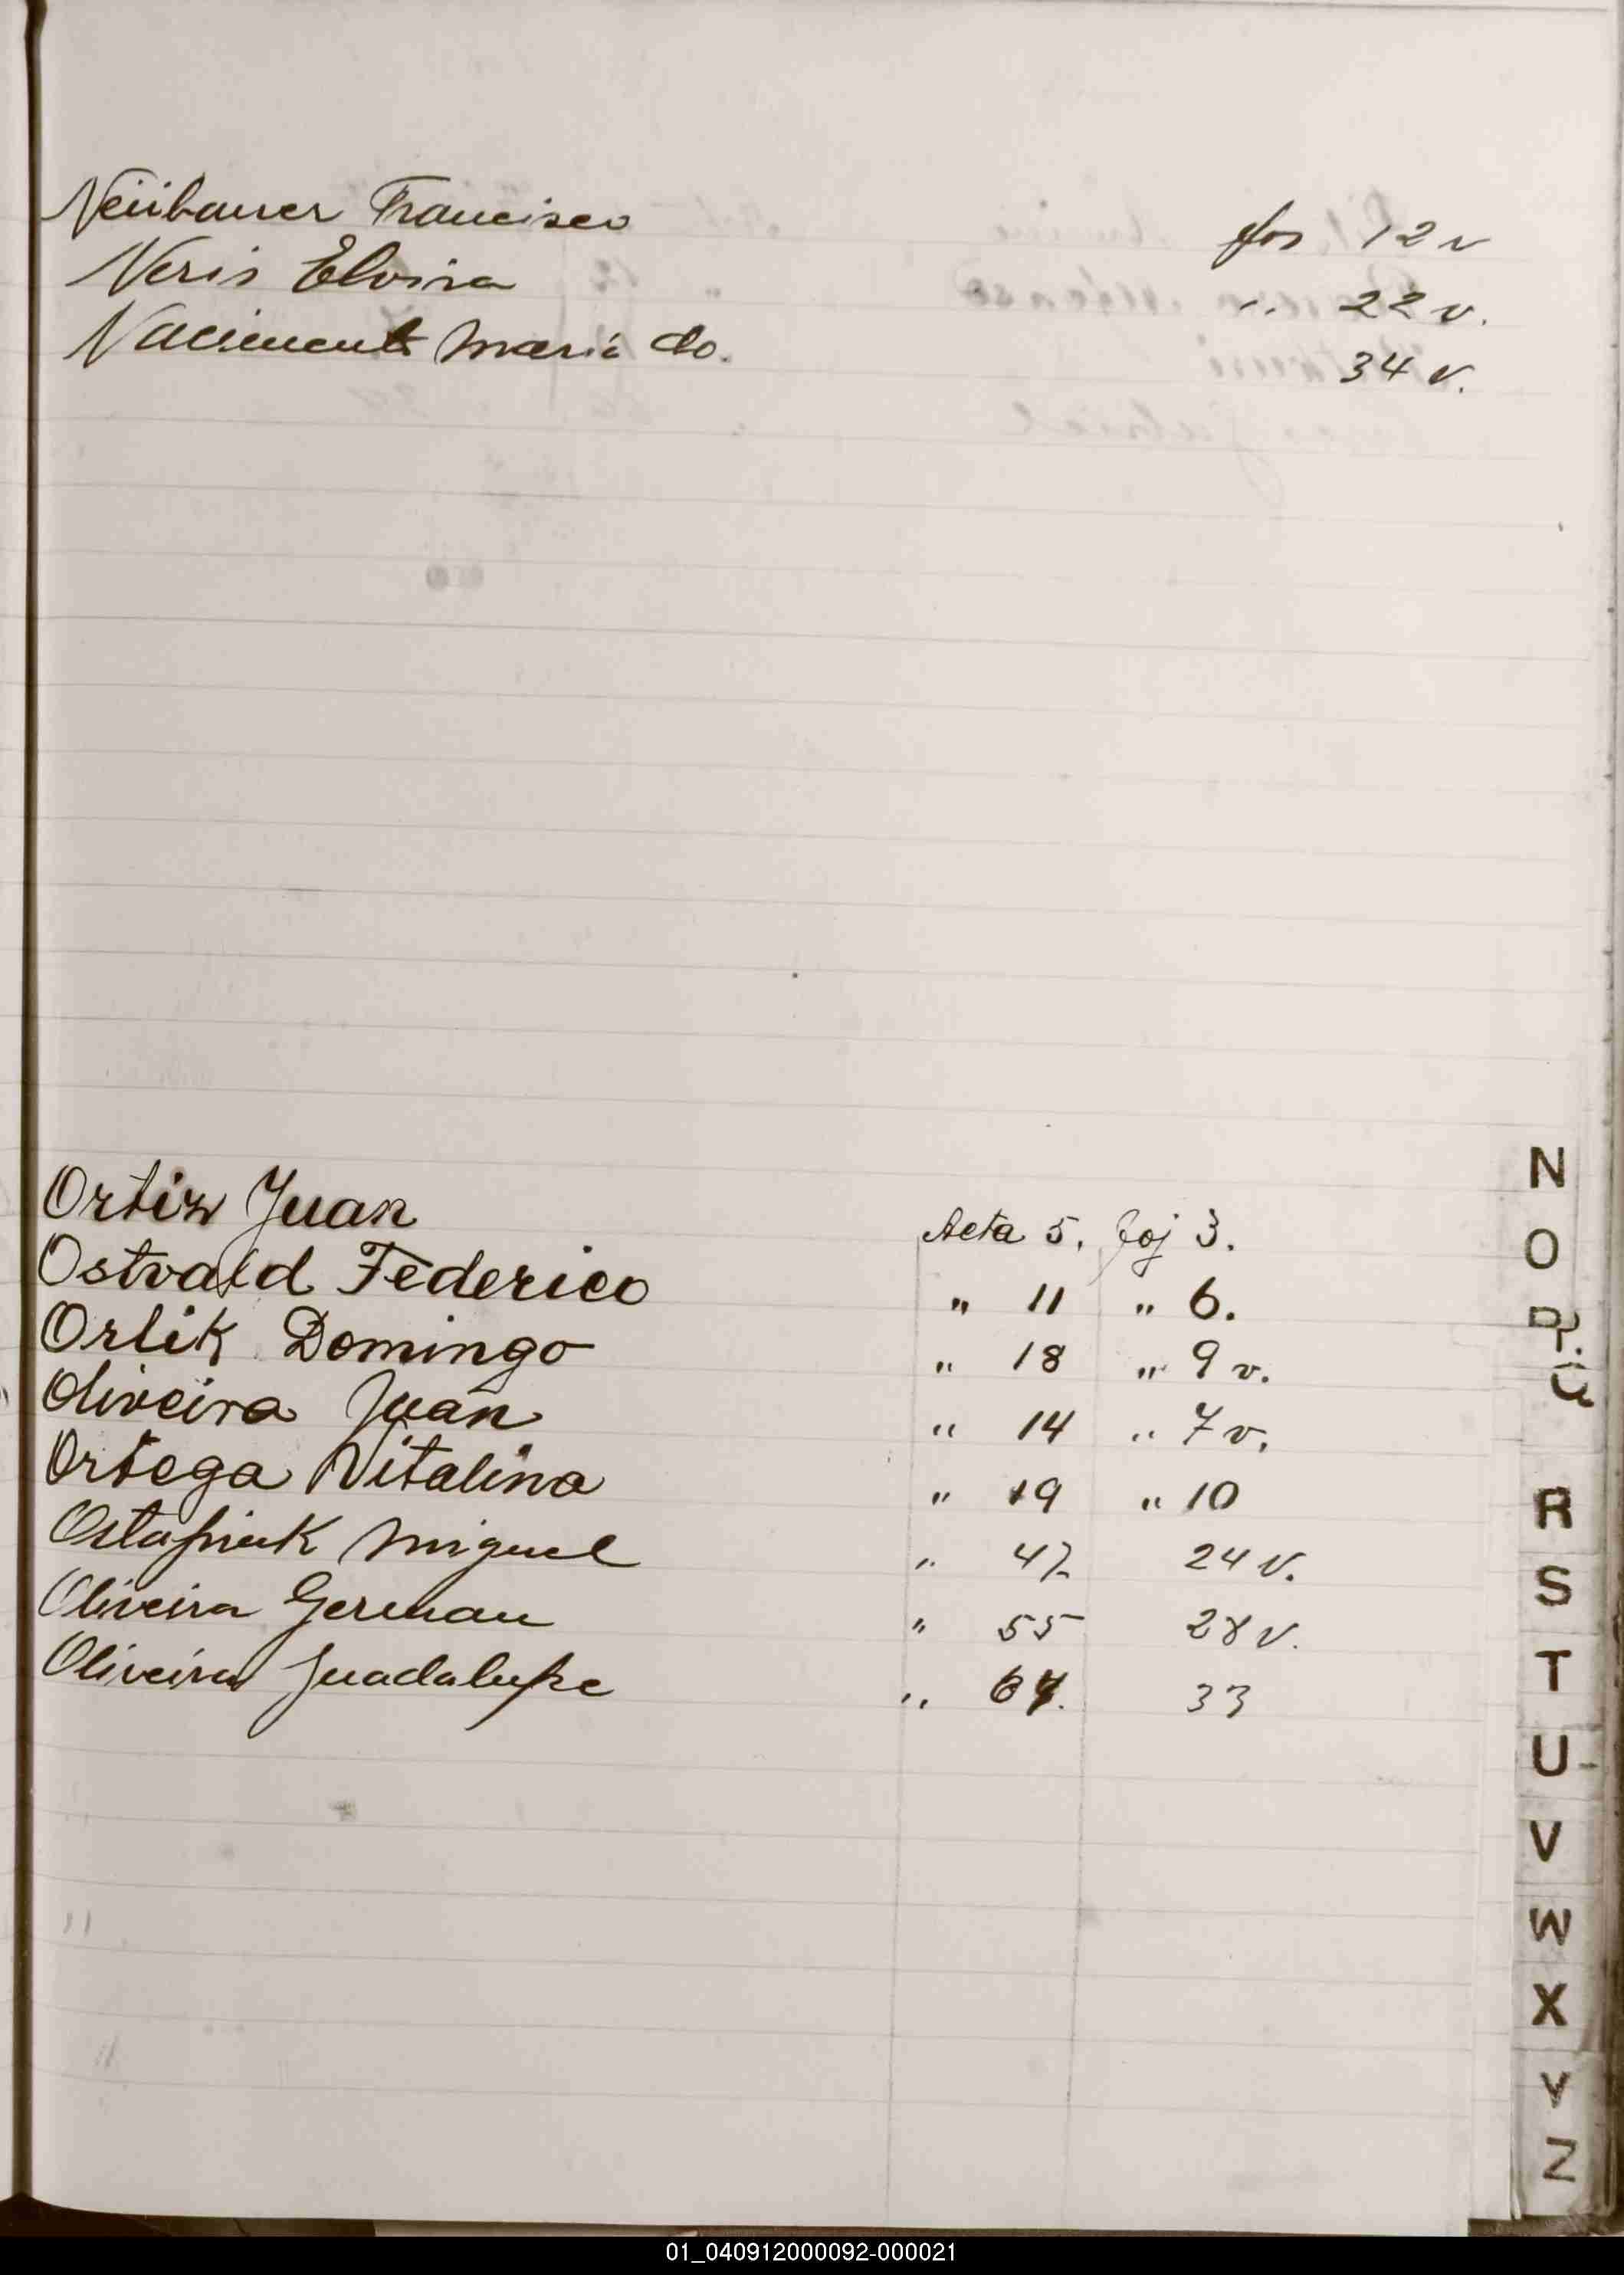 Neübauer Francisco fos 12 v
Neris Elvira " 22 v.
Naciment Maria do. 34 v.
Ortiz Juan Acta 5. foj 3.
Ostvald Federico " 11 " 6.
Orlik Domingo " 18 " 9 v.
Oliveira Juan " 14 " 7 v.
Ortega Vitalina " 19 " 10
Ostapiuk Miguel " 47 24 v.
Oliveira German " 55 28 v.
Oliveira Guadalupe " 64. 33
N
O
P.
Q
R
S
T
U
V
W
X
Y
Z
01_040912000092-000021